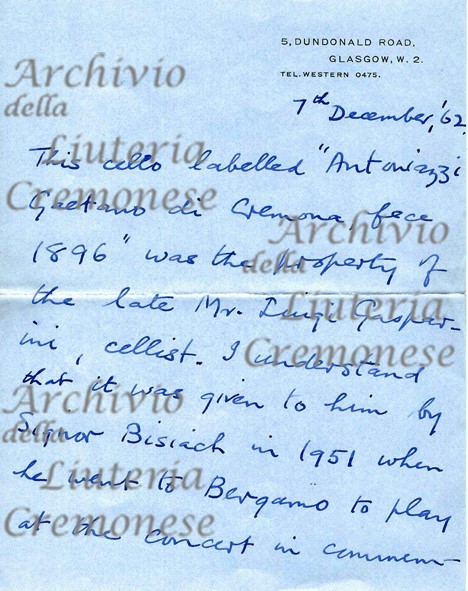 5, DUNDONALD ROAD,
GLASGOW, W. 2.
TEL. WESTERN 0475.
7th December, '62.
This cello labelled "Antoniazzi
Gaetano di Cremona, fece
1896" was the property of
the late Mr. Luigi Gaspar-
ini, cellist. I understand
that it was given to him by
Signor Bisiach in 1951 when
he went to Bergamo to play
at the concert in commem-
Archivio
della
Liuteria
Cremonese
Archivio
della
Liuteria
Cremonese
Archivio
della
Liuteria
Cremonese